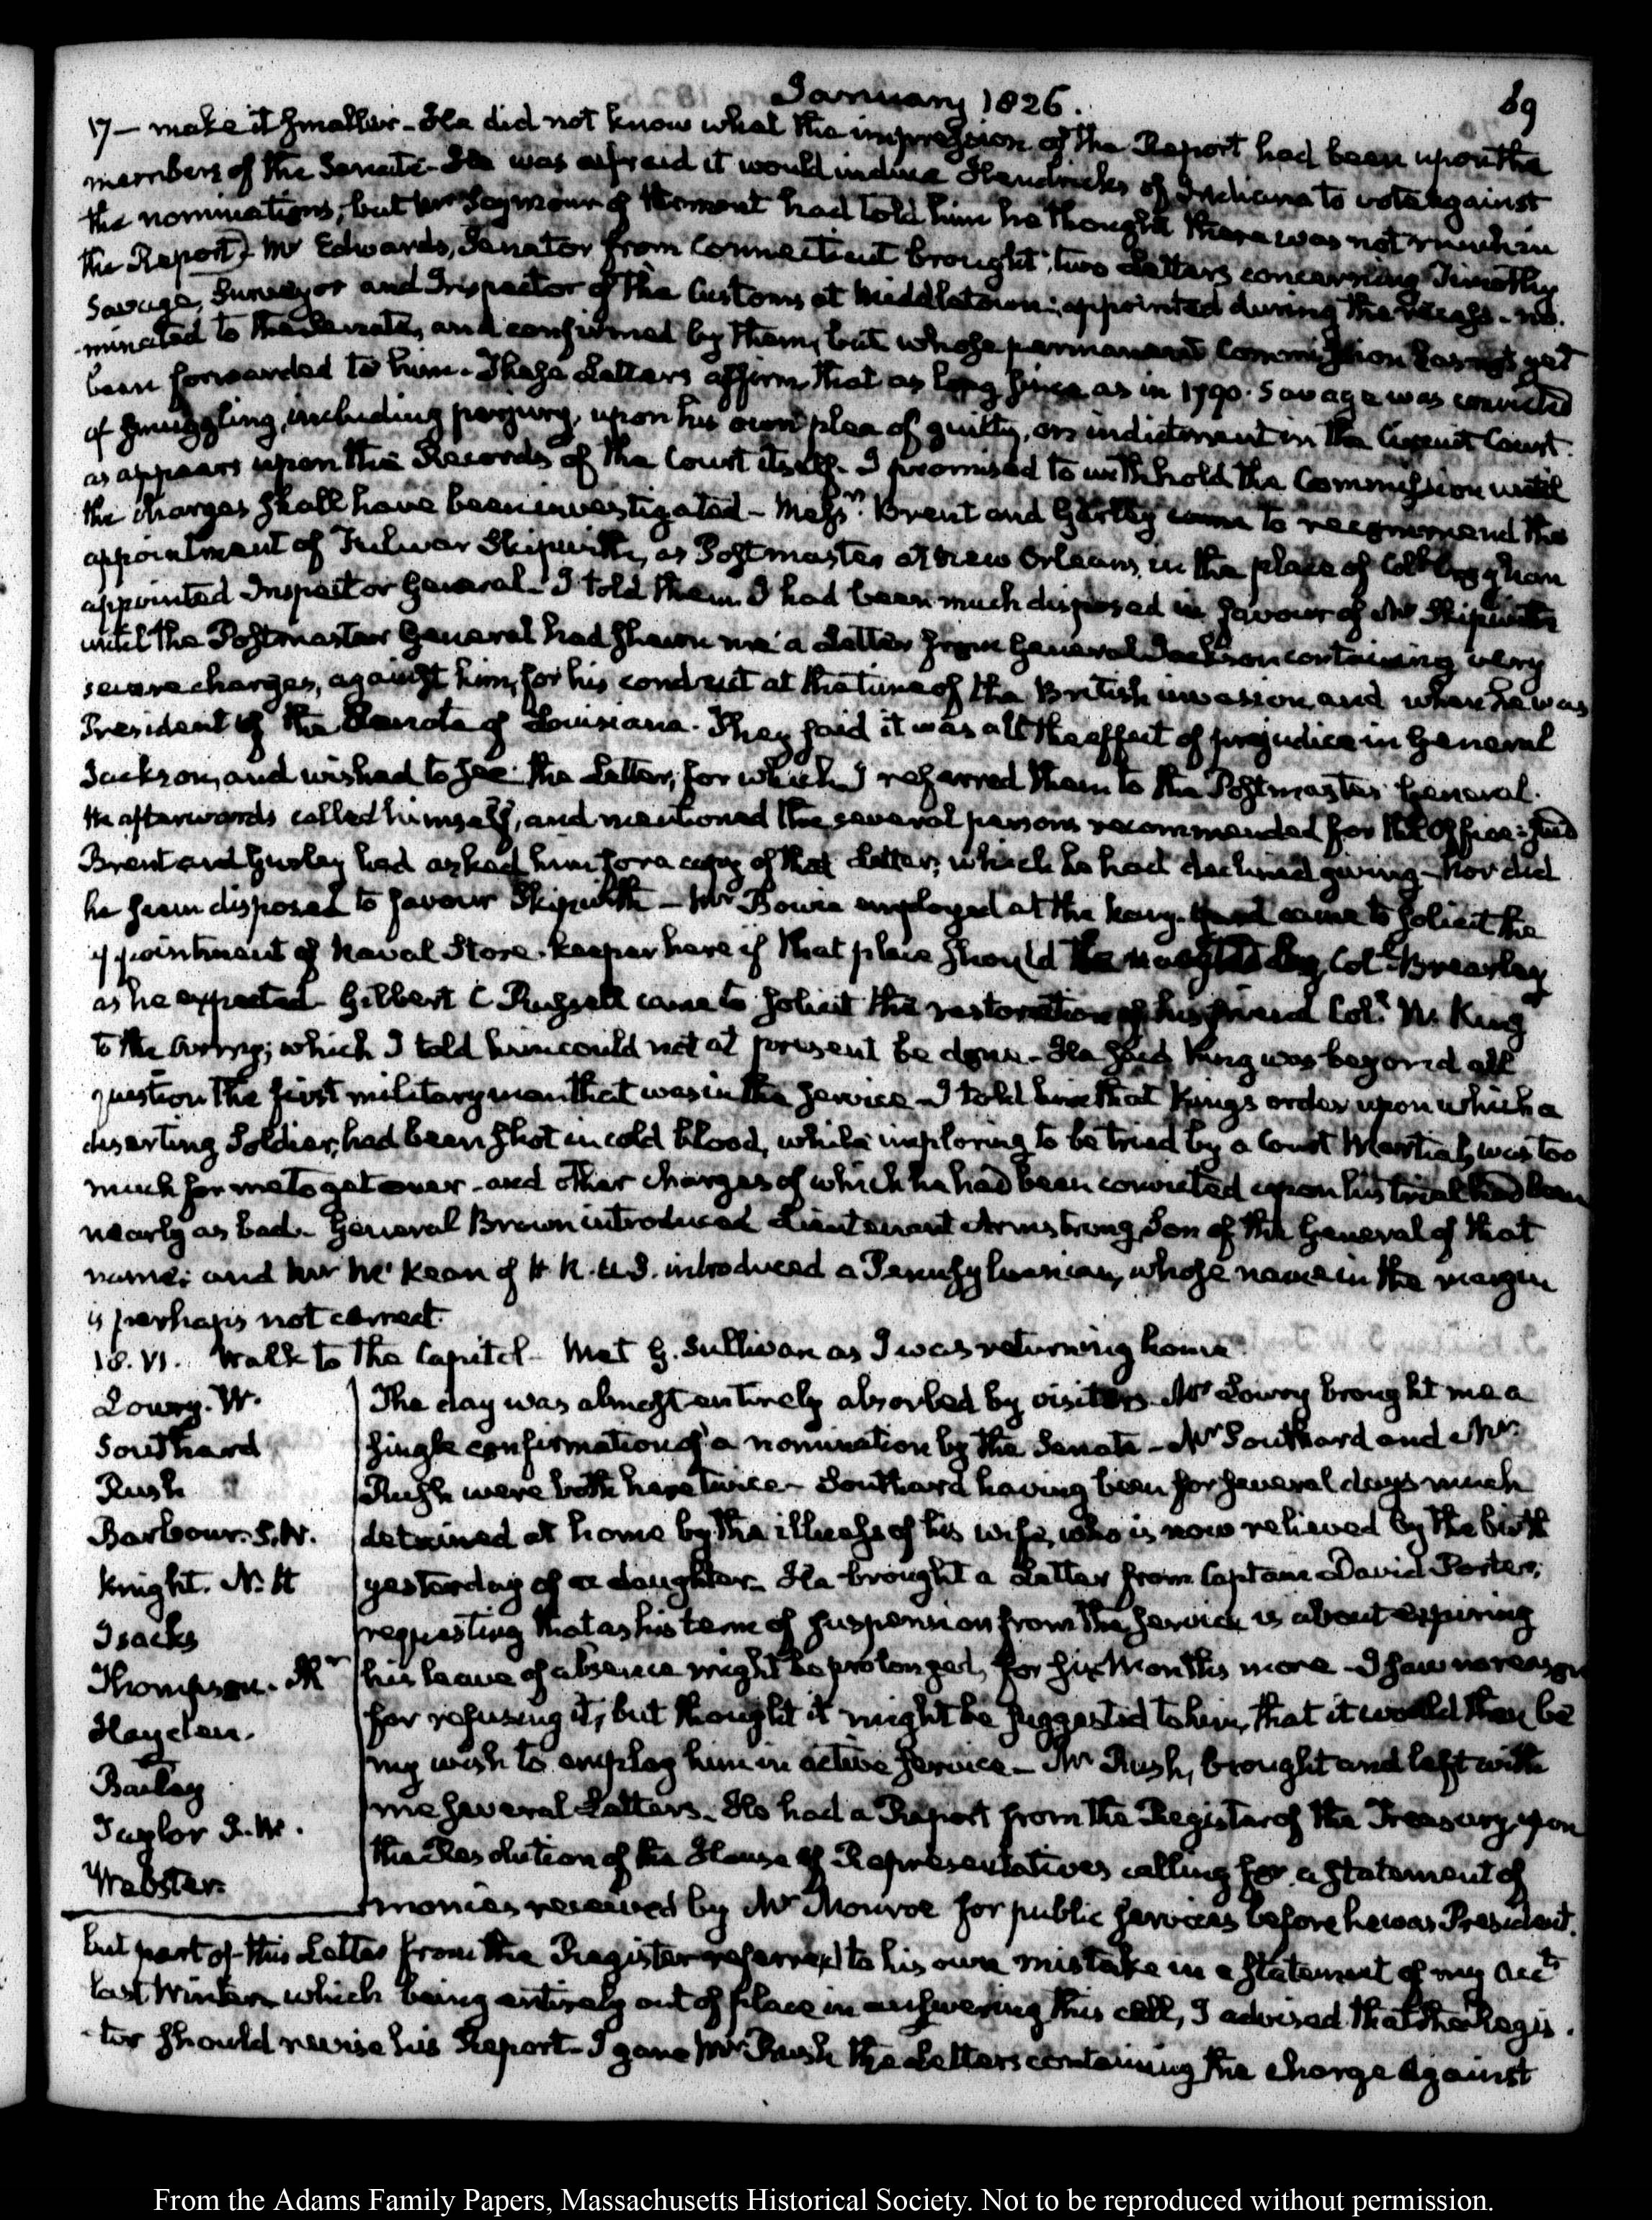 January 1826.
89
17 — make it smaller - He did not know what the impression of the Report had been upon the
members of the Senate - He was afraid it would induce Hendricks of Indiana to vote against
the nominations, but Mr Seymour of Vermont had told him he thought there was not much in
the Report) - Mr Edwards, Senator from Connecticut brought two Letters concerning Timothy
Savage, Surveyor and Inspector of the Customs at Middletown; appointed during the recess - no-
minated to the Senate, and confirmed by them, but whose permanent Commission has not yet
been forwarded to him. These Letters affirm that as long since as in 1790. Savage was convicted
of smuggling, including perjury, upon his own plea of guilty, on indictment in the Circuit Court.
as appears upon the Records of the Court itself. I promised to withhold the Commission until
the charges shall have been investigated - Messrs. Brent and Gurley came to recommend the
appointment of Fulwar Skipwith, as Postmaster at New Orleans, in the place of Coll. Croghan
appointed Inspector General - I told them I had been much disposed in favour of Mr Skipwith
until the Postmaster General had shewn me a Letter from General Jackson containing very
severe charges, against him, for his conduct at the time of the British invasion, and when he was
President of the Senate of Louisiana. They said it was all the effect of prejudice in General
Jackson, and wished to see the Letter, for which I referred them to the Postmaster General.
He afterwards called himself, and mentioned the several persons recommended for the Office: said
Brent and Gurley had asked him for a copy of that Letter, which he had declined giving - Nor did
he seem disposed to favour Skipwith - Mr Bowie employed at the Navy-Yard came to solicit the
appointment of Naval Store-keeper here if that place should be vacated by Col. Brearley
as he expected - Gilbert C Russell came to solicit the restoration of his friend Col. W. King
to the Army; which I told him could not at present be done - He said King was beyond all
question the first military man that was in the service - I told him that King's order upon which a
deserting Soldier, had been shot in cold blood, while imploring to be tried by a Court Martial, was too
much for me to get over - and other charges of which he had been convicted upon his trial had been
nearly as bad - General Brown introduced Lieutenant Armstrong, Son of the General of that
name; and Mr Mc'Kean of H. R. U.S. introduced a Pennsylvanian, whose name in the margin
is perhaps not correct.
18. VI. Walk to the Capitol - Met G. Sullivan as I was returning home.
Lowry. W.
Southard
Rush
Barbour. S.W.
Knight. N. H
Isacks
Thompson. Mr
Hayden.
Bailey
Taylor J. W.
Webster.
The day was almost entirely absorbed by visitors. Mr Lowry brought me a
single confirmation of a nomination by the Senate - Mr Southard and Mr
Rush were both here twice - Southard having been for several days much
detained at home by the illness of his wife, who is now relieved by the birth
yesterday of a daughter. He brought a Letter from Captain David Porter,
requesting that as his term of suspension from the service is about expiring
his leave of absence might be prolonged, for six Months more - I saw no reason
for refusing it, but thought it might be suggested to him, that it would then be
my wish to employ him in active service - Mr Rush, brought and left with
me several Letters. He had a Report from the Register of the Treasury, upon
the Resolution of the House of Representatives calling for a statement of
monies received by Mr Monroe for public services before he was President.
but part of this Letter from the Register referred to his own mistake in a statement of my acct
last Winter which being entirely out of place in answering this call, I advised that the Regis-
ter should revise his Report - I gave Mr Rush the Letters containing the charge against
From the Adams Family Papers, Massachusetts Historical Society. Not to be reproduced without permission.